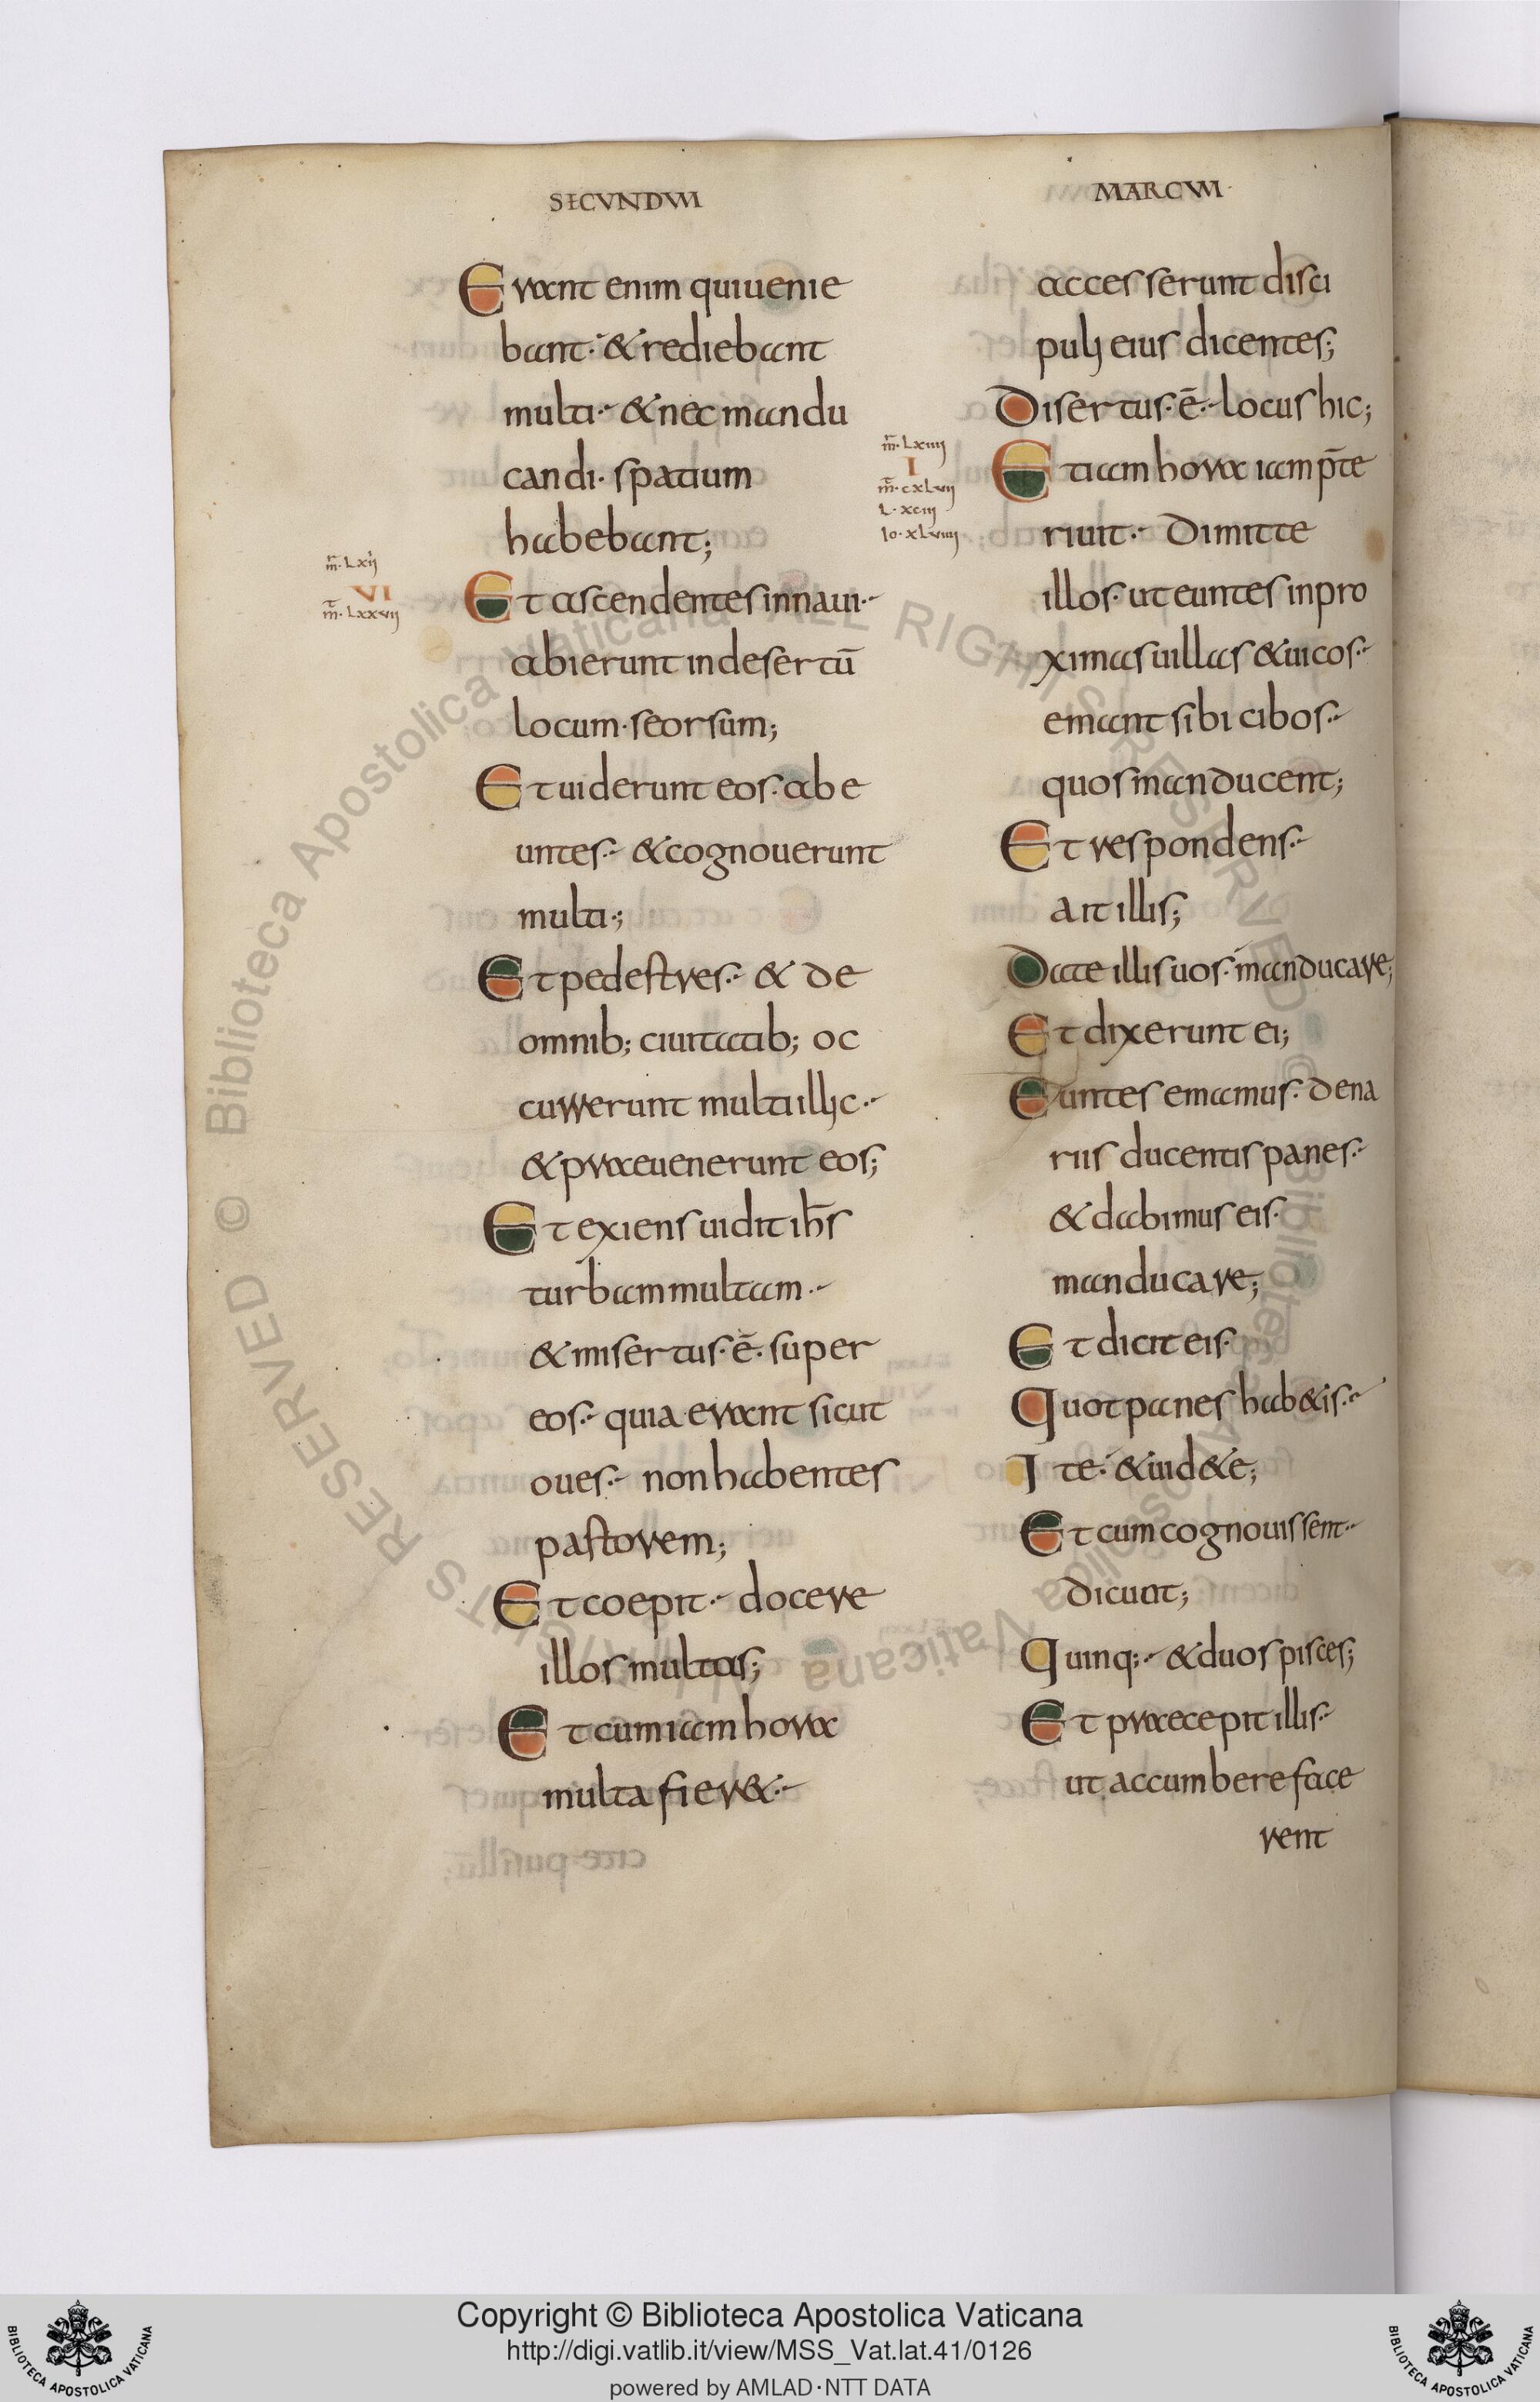 SECVNDVM
MARCVM
Erant enim qui uenie
bant· & rediebant
multi· & nec mandu
candi· spatium
habebant;
mr̄· Lxii
VI
mt̄· Lxxvii
Et ascendentes in naui·
abierunt in desertū
locum· seorsum;
Et uiderunt eos· abe
untes· & cognouerunt
multi·;
Et pedestres· & de
omnib; ciuitatib; oc
currerunt multi illic·
& praeuenerunt eos;
Et exiens uidit ih̄s
turbam multam·
& misertus· ē· super
eos· quia erant sicut
oues· non habentes
pastorem;
Et coepit· docere
illos multas;
Et cum iam hora
multa fier&·
accesserunt disci
puli eius dicentes;
Disertus· ē· locus hic;
mr̄· Lxiiii
I
mt̄· cxLvii
L· xciii
Io· xLviiii
Etiam hora iam p̄te
riuit· Dimitte
illos· ut euntes in pro
ximas uillas & uicos·
emant sibi cibos·
quos manducent;
Et respondens·
ait illis;
Date illis uos· manducare;
Et dixerunt ei;
Euntes emamus· dena
riis ducentis panes·
& dabimus eis·
manducare;
Et dicit eis·
Quot panes hab&is·
Ite· & uid&e;
Et cum cognouissent·
dicunt;
Quinq;· & duos pisces;
Et praecepit illis·
ut accumbere face
rent
Copyright © Biblioteca Apostolica Vaticana
http://digi.vatlib.it/view/MSS_Vat.lat.41/0126
powered by AMLAD·NTT DATA
BIBLIOTECA APOSTOLICA VATICANA
BIBLIOTECA APOSTOLICA VATICANA